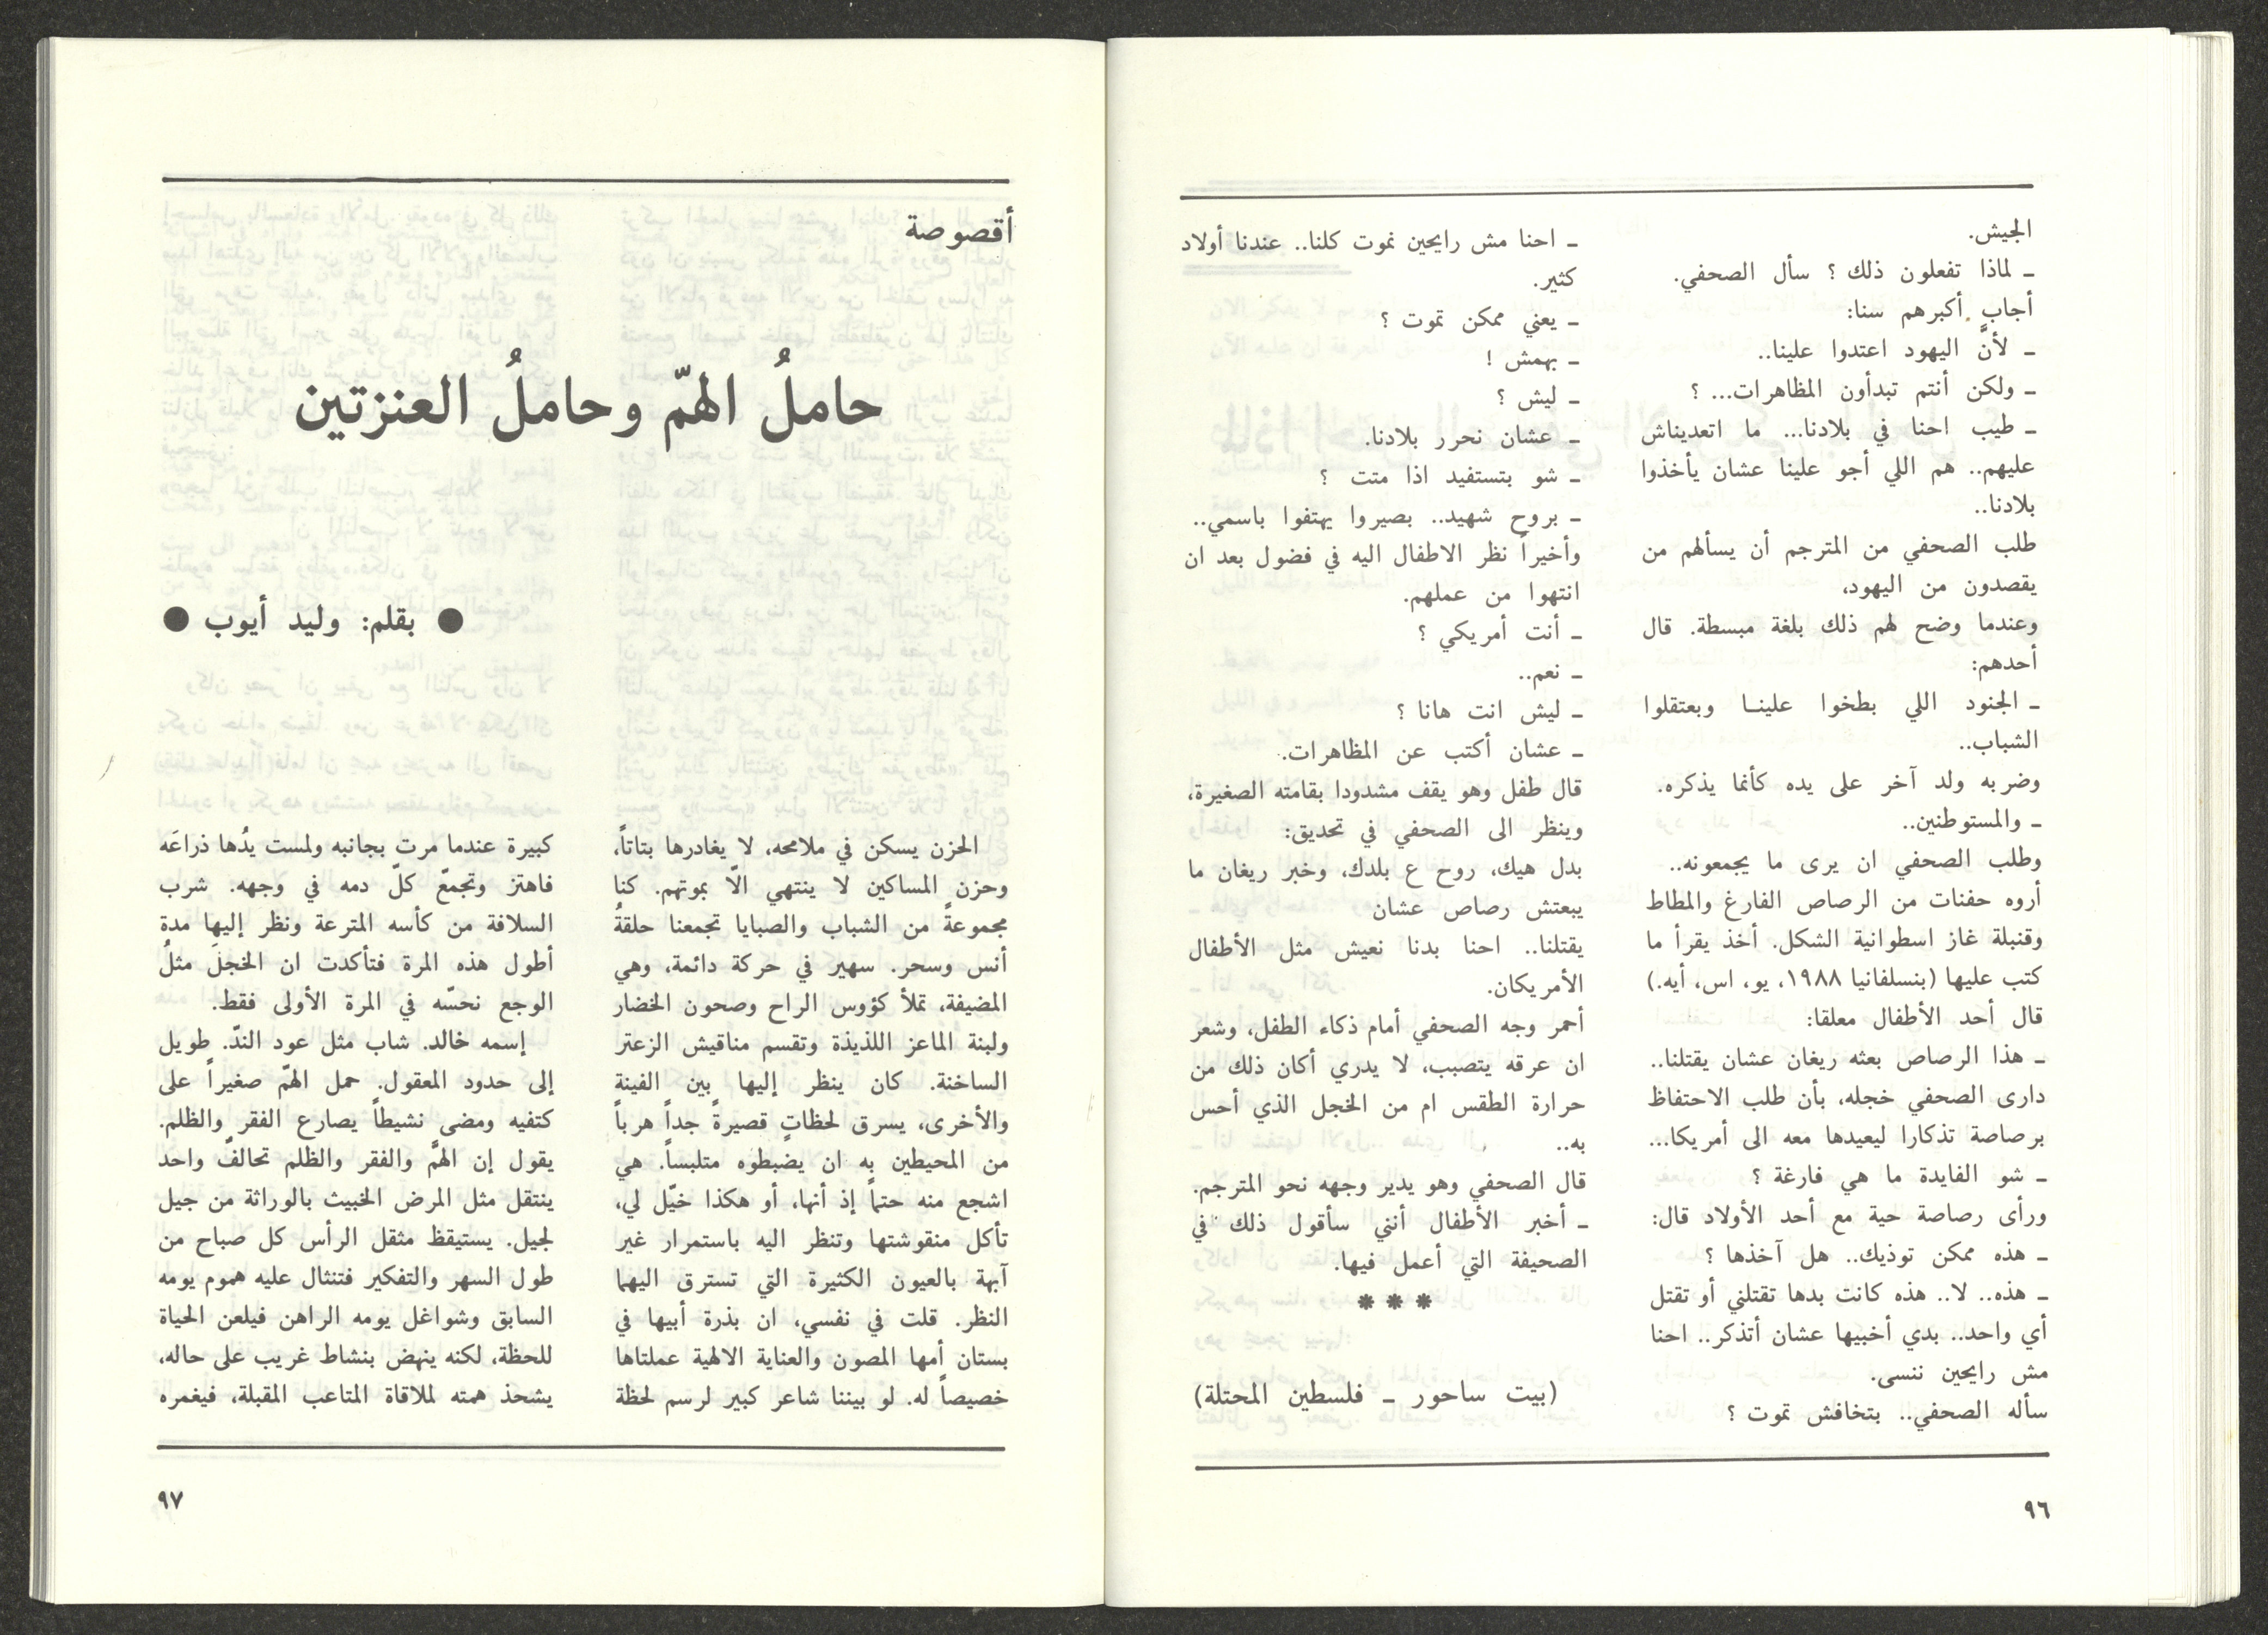 الجيش.
ـ لماذا تفعلون ذلك ؟ سأل الصحفي.
أجاب أكبرهم سنا:
ـ لأنَّ اليهود اعتدوا علينا..
ـ ولكن أنتم تبدأون المظاهرات... ؟
ـ طيب احنا في بلادنا... ما اتعديناش
عليهم.. هم اللي أجو علينا عشان يأخذوا
بلادنا..
طلب الصحفي من المترجم أن يسألهم من
يقصدون من اليهود،
وعندما وضح لهم ذلك بلغة مبسطة. قال
أحدهم:
ـ الجنود اللي بطخوا علينا وبعتقلوا
الشباب..
وضربه ولد آخر على يده كأنما يذكره.
ـ والمستوطنين..
وطلب الصحفي ان يرى ما يجمعونه..
أروه حفنات من الرصاص الفارغ والمطاط
وقنبلة غاز اسطوانية الشكل. أخذ يقرأ ما
كتب عليها (بنسلفانيا ١٩٨٨، يو، اس، أيه.)
قال أحد الأطفال معلقا:
ـ هذا الرصاص بعثه ريغان عشان يقتلنا..
دارى الصحفي خجله، بأن طلب الاحتفاظ
برصاصة تذكارا ليعيدها معه الى أمريكا...
ـ شو الفايدة ما هي فارغة ؟
ورأى رصاصة حية مع أحد الأولاد قال:
ـ هذه ممكن توذيك.. هل آخذها ؟
ـ هذه.. لا.. هذه كانت بدها تقتلني أو تقتل
أي واحد.. بدي أخبيها عشان أتذكر.. احنا
مش رايحين ننسى.
سأله الصحفي.. بتخافش تموت ؟
ـ احنا مش رايحين نموت كلنا.. عندنا أولاد
كثير.
ـ يعني ممكن تموت ؟
ـ بهمش !
ـ ليش ؟
ـ عشان نحرر بلادنا.
ـ شو بتستفيد اذا متت ؟
ـ بروح شهيد.. بصيروا يهتفوا باسمي..
وأخيراً نظر الاطفال اليه في فضول بعد ان
انتهوا من عملهم.
ـ أنت أمريكي ؟
ـ نعم..
ـ ليش انت هانا ؟
ـ عشان أكتب عن المظاهرات.
قال طفل وهو يقف مشدودا بقامته الصغيرة،
وينظر الى الصحفي في تحديق:
بدل هيك، روح ع بلدك، وخبر ريغان ما
يبعتش رصاص عشان
يقتلنا.. احنا بدنا نعيش مثل الأطفال
الأمريكان.
أحمر وجه الصحفي أمام ذكاء الطفل، وشعر
ان عرقه يتصبب، لا يدري أكان ذلك من
حرارة الطقس ام من الخجل الذي أحس
به..
قال الصحفي وهو يدير وجهه نحو المترجم.
ـ أخبر الأطفال أنني سأقول ذلك في
الصحيفة التي أعمل فيها.
* * *
(بيت ساحور ـ فلسطين المحتلة)
٩٦
أقصوصة
حاملُ الهمّ وحاملُ العنزتين
● بقلم: وليد أيوب ●
الحزن يسكن في ملامحه، لا يغادرها بتاتاً،
وحزن المساكين لا ينتهي الّا بموتهم. كنا
مجموعةً من الشباب والصبايا تجمعنا حلقةُ
أنس وسحر. سهير في حركة دائمة، وهي
المضيفة، تملأ كؤوس الراح وصحون الخضار
ولبنة الماعز اللذيذة وتقسم مناقيش الزعتر
الساخنة. كان ينظر إليها بين الفينة
والأخرى، يسرق لحظاتٍ قصيرةً جداً هرباً
من المحيطين به ان يضبطوه متلبساً. هي
اشجع منه حتماً إذ أنها، أو هكذا خيّل لي،
تأكل منقوشتها وتنظر اليه باستمرار غير
آبهة بالعيون الكثيرة التي تسترق اليهما
النظر. قلت في نفسي، ان بذرة أبيها في
بستان أمها المصون والعناية الالهية عملتاها
خصيصاً له. لو بيننا شاعر كبير لرسم لحظة
كبيرة عندما مرت بجانبه ولمست يدُها ذراعَه
فاهتز وتجمعّ كلّ دمه في وجهه. شرب
السلافة من كأسه المترعة ونظر إليها مدة
أطول هذه المرة فتأكدت ان الخجلَ مثلُ
الوجع نحسّه في المرة الأولى فقط.
إسمه خالد. شاب مثل عود الندّ. طويل
إلى حدود المعقول. حمل الهمّ صغيراً على
كتفيه ومضى نشيطاً يصارع الفقر والظلم.
يقول إن الهمَّ والفقر والظلم تحالفٌ واحد
ينتقل مثل المرض الخبيث بالوراثة من جيل
لجيل. يستيقظ مثقل الرأس كل صباح من
طول السهر والتفكير فتنثال عليه هموم يومه
السابق وشواغل يومه الراهن فيلعن الحياة
للحظة، لكنه ينهض بنشاط غريب على حاله،
يشحذ همته لملاقاة المتاعب المقبلة، فيغمره
٩٧